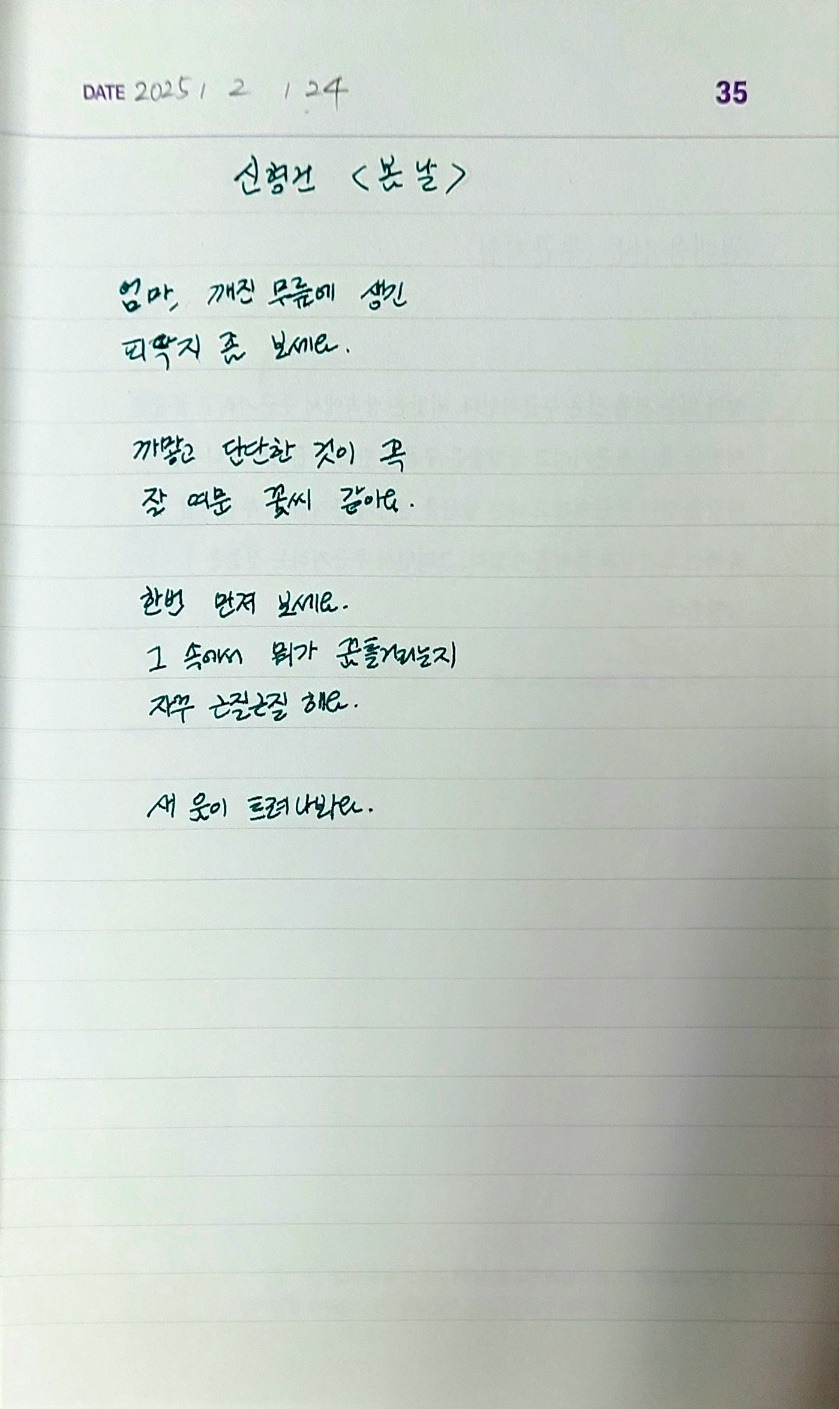 DATE 2025 / 2 / 24
35
신형건 <봄날>
엄마, 깨진 무릎에 생긴
피딱지 좀 보세요.
까맣고 단단한 것이 꼭
잘 여문 꽃씨 같아요.
한번 만져 보세요.
그 속에서 뭐가 꿈틀거리는지
자꾸 근질근질 해요.
새 움이 트려나봐요.